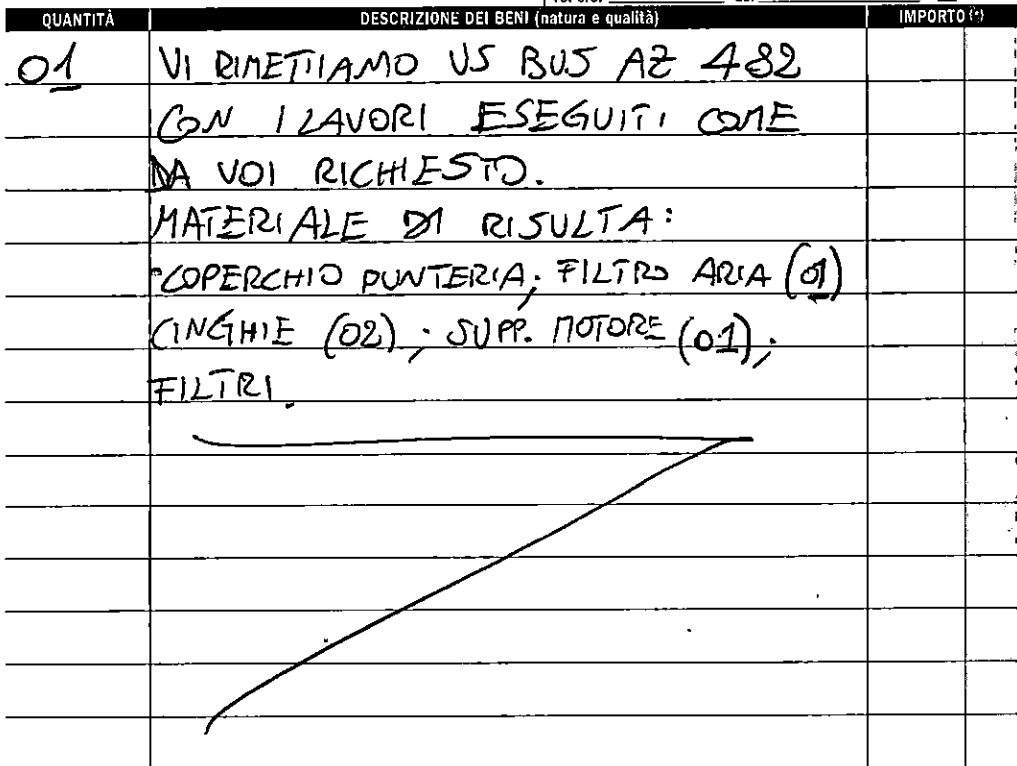 QUANTITÀ DESCRIZIONE DEI BENI (natura e qualità) IMPORTO (*)
01 VI RIMETTIAMO VS BUS AZ 482
CON I LAVORI ESEGUITI COME
DA VOI RICHIESTO.
MATERIALE DI RISULTA:
COPERCHIO PUNTERIA; FILTRO ARIA (01)
CINGHIE (02); SUPP. MOTORE (01);
FILTRI.